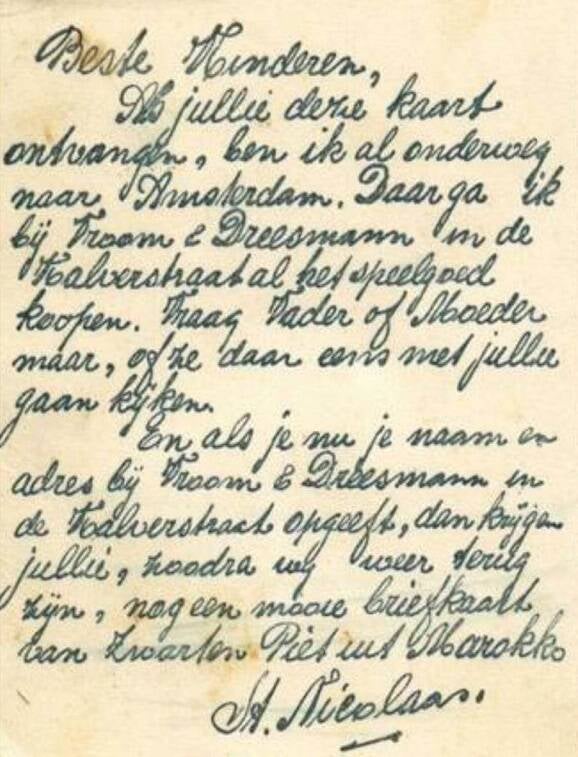 Beste Kinderen,
Als jullie deze kaart
ontvangen, ben ik al onderweg
naar Amsterdam. Daar ga ik
bij Vroom & Dreesmann in de
Kalverstraat al het speelgoed
koopen. Vraag Vader of Moeder
maar, of ze daar eens met jullie
gaan kijken.
En als je nu je naam en
adres bij Vroom & Dreesmann in
de Kalverstraat opgeeft, dan krijgen
jullie, zoodra wij weer terug
zijn, nog een mooie briefkaart
van Zwarten Piet uit Marokko
St. Nicolaas.